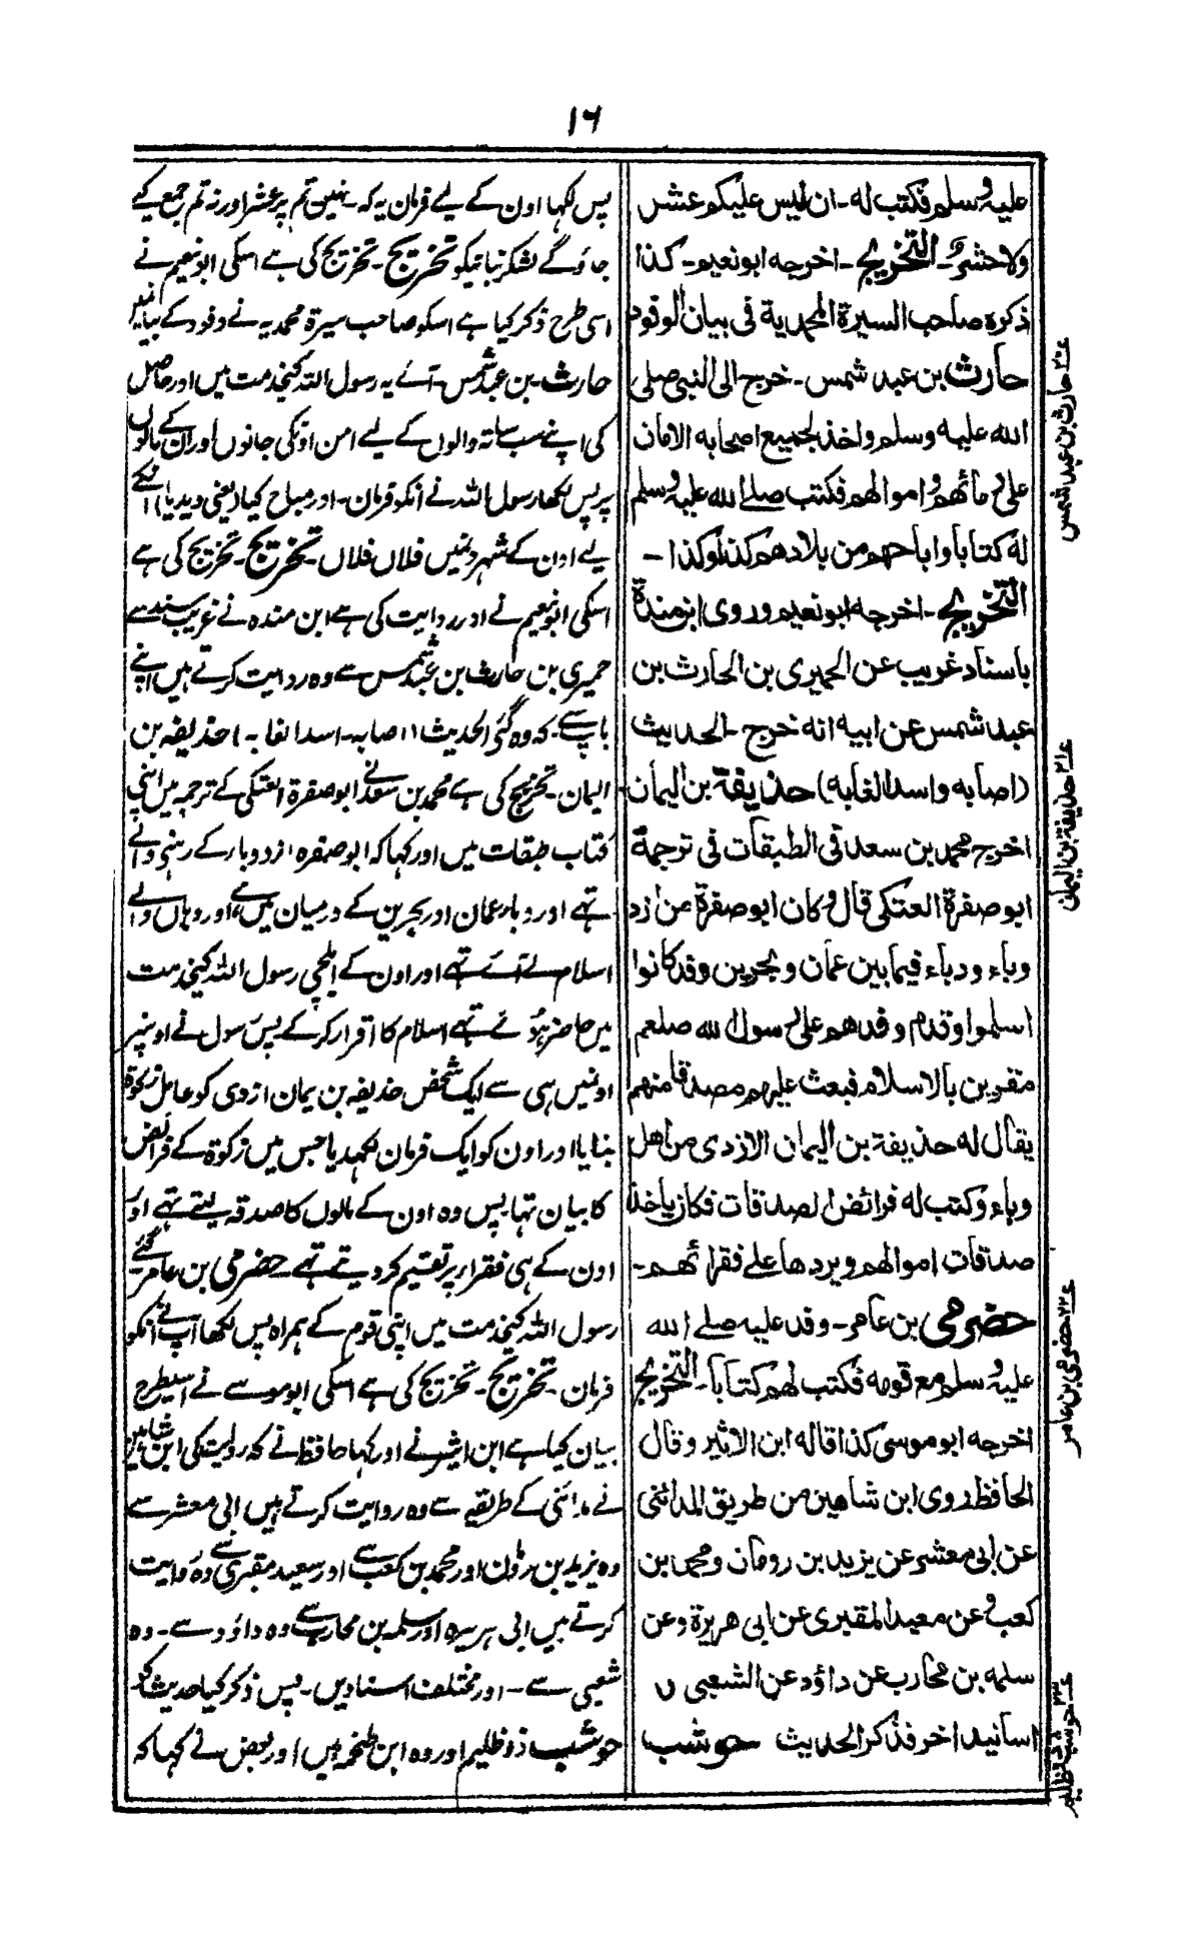 ١٦
عليه وسلم فكتب له۔ ان ليس عليكم عشر
ولا حشر۔ التخريج۔ اخرجه ابو نعيم۔ كذا
ذكره صاحب السيرة المحمدية فى بيان الوفود
حارث بن عبد شمس۔ خرج الى النبى صلى
الله عليه وسلم واخذ لجميع اصحابه الامان
على دمائهم واموالهم فكتب صلے الله عليه وسلم
له كتابا واباحهم من بلادهم كذا وكذا۔
التخريج۔ اخرجه ابو نعيم وروى ابن مندة
باسناد غريب عن الحميرى بن الحارث بن
عبد شمس عن ابيه انه خرج۔ الحديث
(اصابه واسد الغابه) حذيفة بن اليمان
اخرج محمد بن سعد فى الطبقات فى ترجمة
ابو صفرة العتكى قال وكان ابو صفرة من ازد
وباء ودباء فيما بين عمان وبحرين وقد كانوا
اسلموا وقدم وفدهم على رسول الله صلعم
مقرين بالاسلام فبعث عليهم مصدقا منهم
يقال له حذيفة بن اليمان الازدى من اهل
وباء وكتب له فرائض الصدقات فكان ياخذ
صدقات اموالهم ويردها على فقرائهم۔
حضرمى بن عامر۔ وفد عليه صلے الله
عليه وسلم مع قومه فكتب لهم كتابا۔ التخريج
اخرجه ابو موسى كذا قاله ابن الاثير وقال
الحافظ روى ابن شاهين من طريق المدائنى
عن ابى معشر عن يزيد بن رومان ومحمد بن
كعب وعن سعيد المقبرى عن ابى هريرة وعن
سلمه بن محارب عن داؤد عن الشعبى و
اسانيد اخر فذكر الحديث حوشب
پس لکھا اون کے لیے فرمان یہ کہ۔ نہیں تم پر عشر اور نہ تم جمع کیے
جاؤ گے لشکر بنانیکو تخریج۔ تخریج کی ہے اسکی ابو نعیم نے
اسی طرح ذکر کیا ہے اسکو صاحب سیرۃ محمدیہ نے وفود کے بیانمیں
حارث۔ بن عبد شمس۔ آئے یہ رسول اللہ کیخدمت میں اور حاصل
کی اپنے سب ساتہ والوں کے لیے امن اونکی جانوں اور ان کے مالوں
پر پس لکھا رسول اللہ نے انکو فرمان۔ اور مباح کیا (یعنی دیدیا) انکے
لیے اون کے شہرونمیں فلاں فلاں۔ تخریج۔ تخریج کی ہے
اسکی ابو نعیم نے اور روایت کی ہے ابن مندہ نے غریب سند سے
حمیری بن حارث بن عبد شمس سے وہ روایت کرتے ہیں اپنے
باپ سے۔ کہ وہ گئے الحدیث (اصابہ۔ اسد الغابہ) حذیفہ بن
الیمان۔ تخریج کی ہے محمد بن سعد نے ابو صفرۃ العتکی کے ترجمہ میں اپنی
کتاب طبقات میں اور کہا کہ ابو صفرہ ازد وبار کے رہنے والے
تہے اور دبار عمان اور بحرین کے درمیان میں ہے اور وہاں والے
اسلام لے آئے تہے اور اون کے ایلچی رسول اللہ کیخدمت
میں حاضر ہوئے تہے اسلام کا اقرار کرکے پس رسول نے اونپر
اونہیں ہی سے ایک شخص حذیفہ بن یمان ازدی کو عامل زکوۃ
بنایا اور اون کو ایک فرمان لکھدیا جس میں زکوۃ کے فرائض
کا بیان تہا پس وہ اون کے مالوں کا صدقہ لیتے تہے اور
اون کے ہی فقرار پر تقسیم کر دیتے تہے حضرمی بن عامر۔ گئے
رسول اللہ کیخدمت میں اپنی قوم کے ہمراہ پس لکھا آپ نے انکو
فرمان۔ تخریج۔ تخریج کی ہے اسکی ابو موسے نے اسیطرح
بیان کیا ہے ابن اثیر نے اور کہا حافظ نے کہ روایت کی ابن شاہین
نے مدائنی کے طریقہ سے وہ روایت کرتے ہیں ابی معشر سے
وہ یزید بن رومان اور محمد بن کعب سے اور سعید مقبری سے وہ روایت
کرتے ہیں ابی ہریرہ اور سلمہ بن محارب سے وہ داؤد سے۔ وہ
شعبی سے۔ اور مختلف اسنادیں۔ پس ذکر کیا حدیث کو
حوشب ذو ظلیم اور وہ ابن طخمہ ہیں اور بعض نے کہا کہ
ع٢٠ حارث بن عبد شمس
ع٢١ حذيفة بن اليمان
ع٢٢ حضرمى بن عامر
ع٢٣ حوشب ذو ظليم